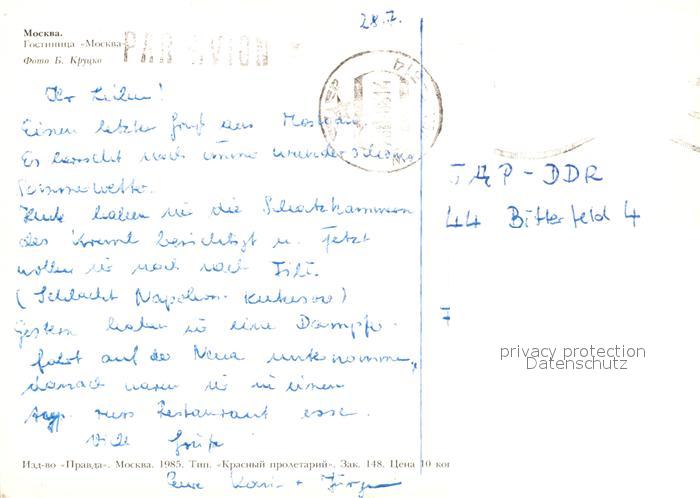 28.7.
Москва.
Гостиница «Москва»
Фото Б. Круцко
PAR AVION
Ihr Lieben!
Einen letzten Gruß aus Moskau.
Es herrscht noch immer wunderschönes
Sommerwetter.
Heute haben wir die Schatzkammern
des Kreml besichtigt u. jetzt
wollen wir noch nach Fili.
(Schlacht Napoleon - Kutusow)
Gestern haben wir eine Dampfer-
fahrt auf der unternommen,
danach waren wir in einem
russ Restaurant essen.
Viele Grüße
Eure Karin + Jürgen
ГДР - DDR
44 Bitterfeld 4
7
privacy protection
Datenschutz
Изд-во «Правда». Москва. 1985. Тип. «Красный пролетарий». Зак. 148. Цена 10 коп